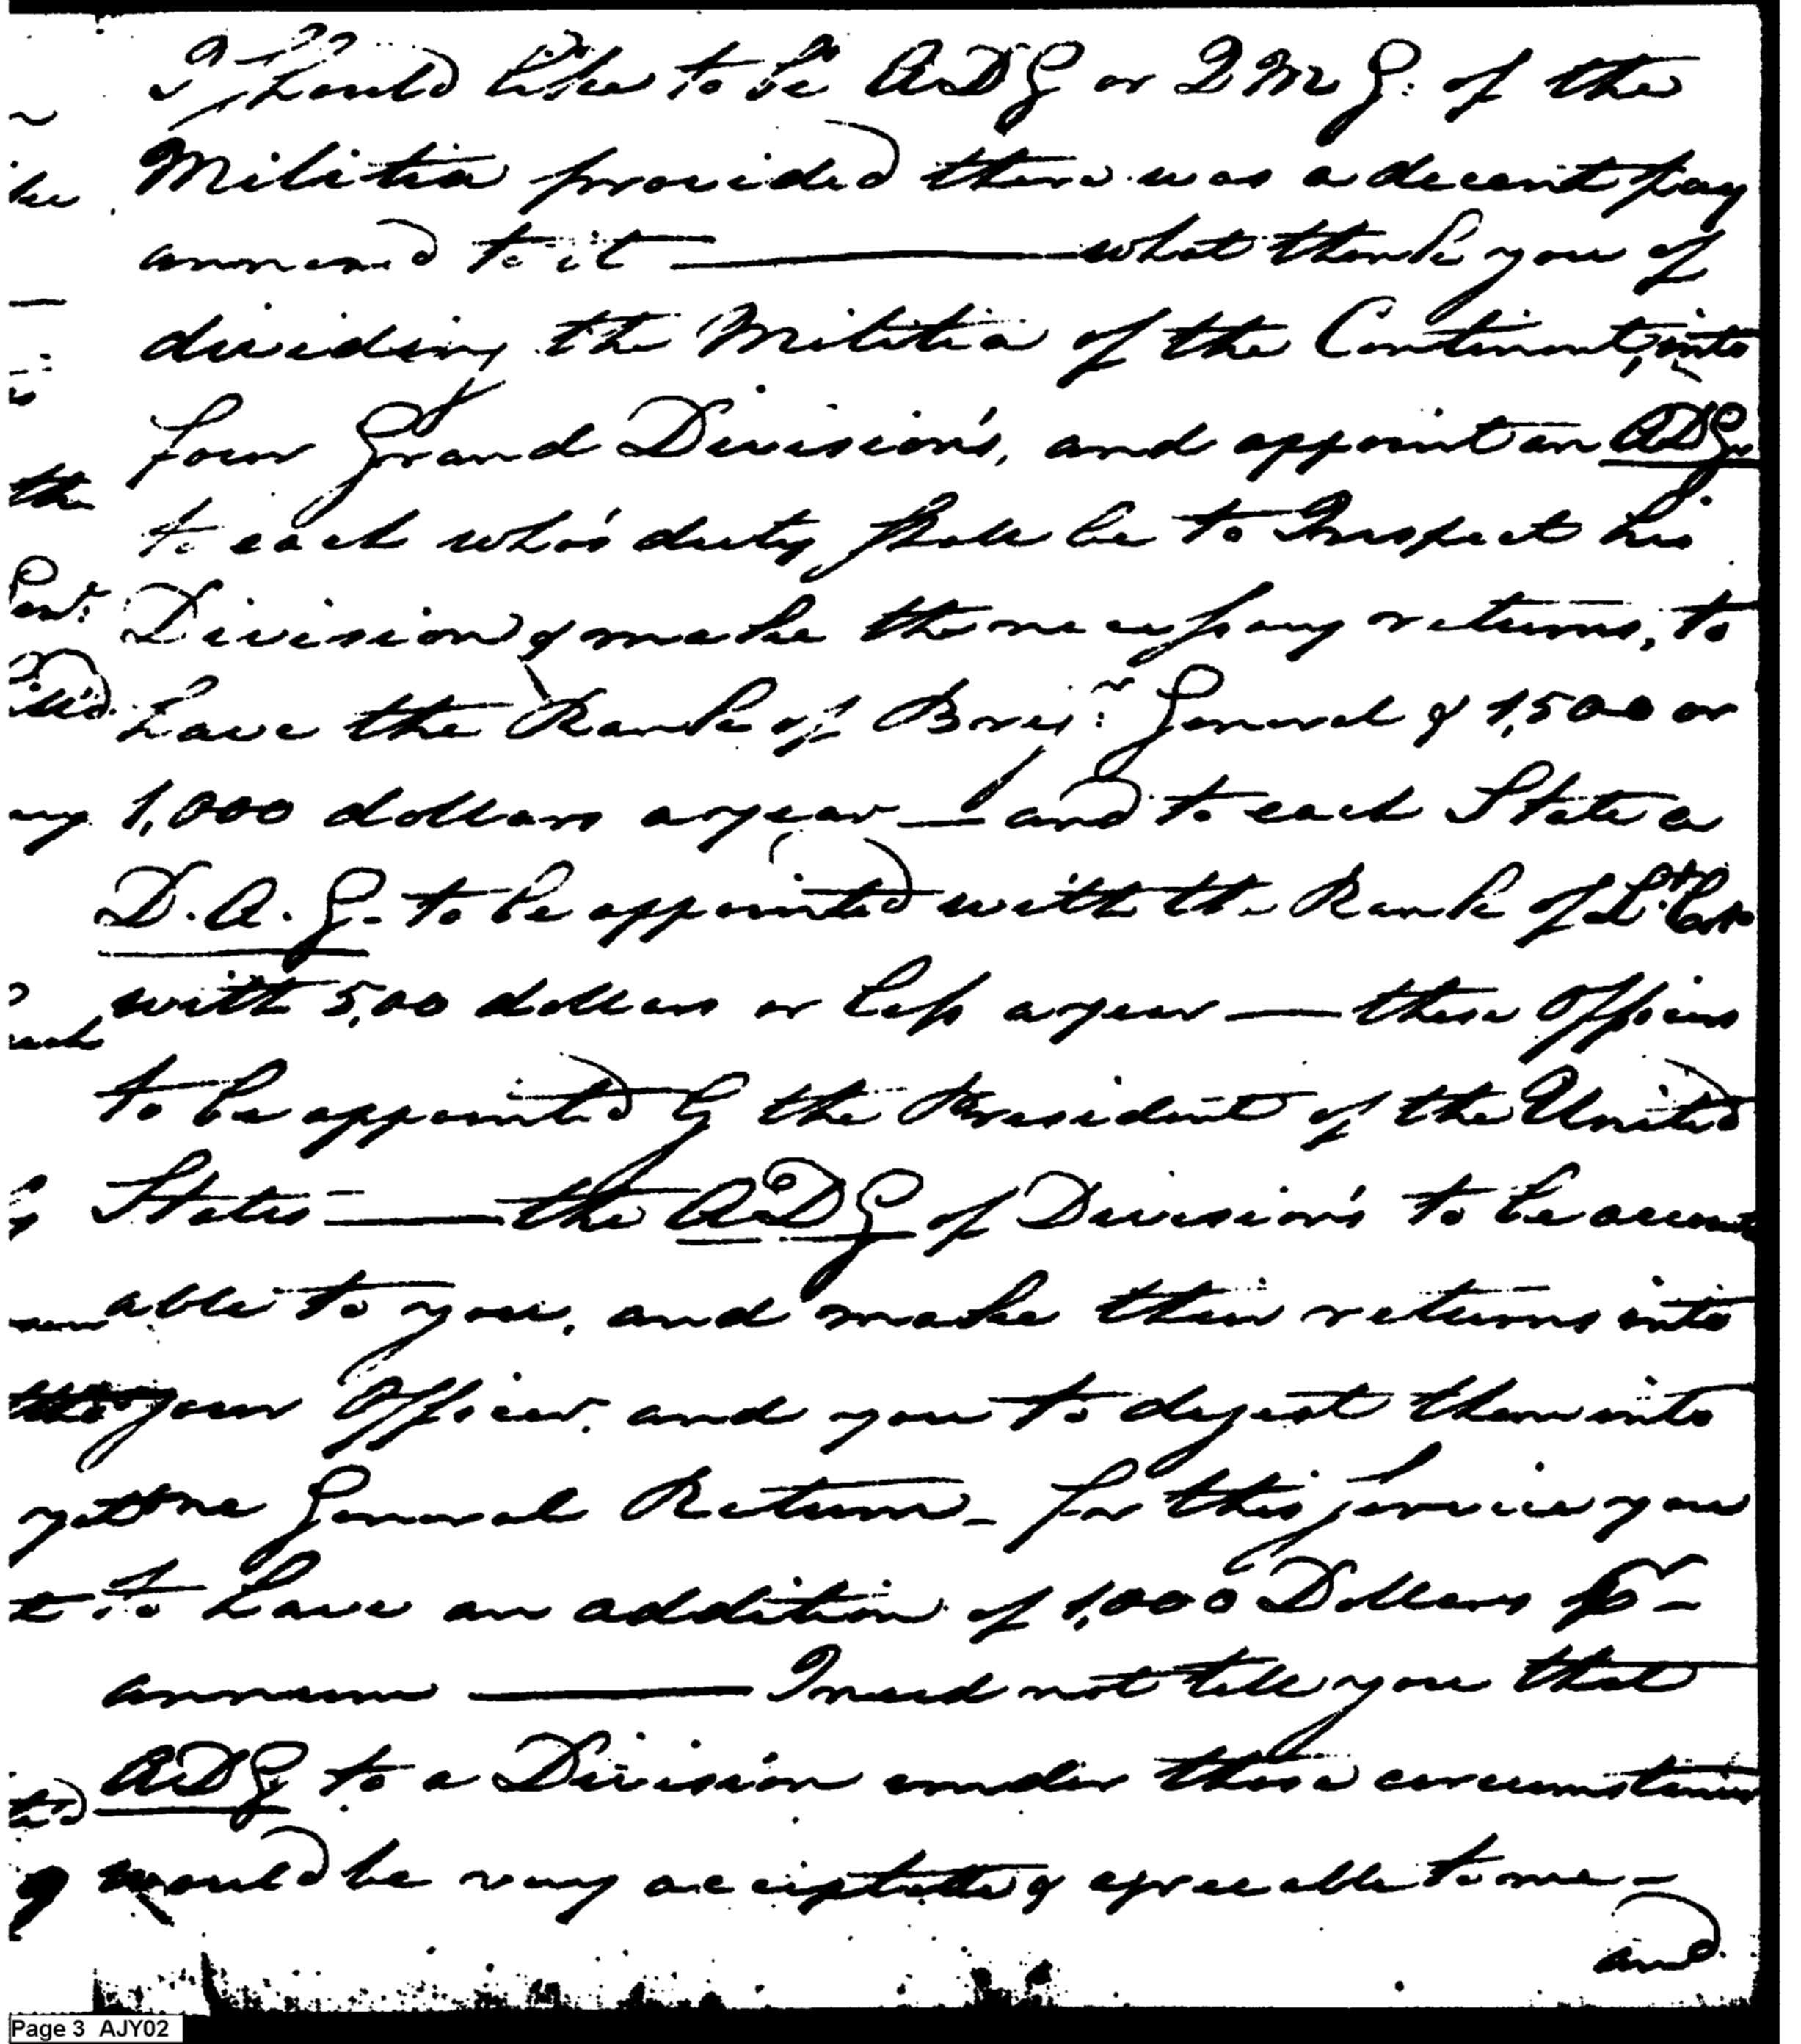 I should like to be ADG or QMG: of the
Militia provided there was a decent pay
annexed to it — what think you of
dividing the Militia of the Continent, into
four Grand Division's, and appoint an ADG
to each who's duty shall be to Inspect his
Division & make the necessary returns, to
have the Rank of Brigr: General & 1,500 or
1,000 dollars a year — and to each State a
D. A. G. to be appointed with the Rank of Lt. Col
with 5,00 dollars or less a year — these Officers
to be appointed by the President of the United
States — the ADG of Division's to be account
able to you, and make their returns into
your Office. and you to digest them into
one General Return — for this service you
to have an addition of 1,000 Dollars pr —
annum — I need not tell you that
ADG to a Division under those circumstances
would be very acceptable & agreeable to me —
and
Page 3 AJY02